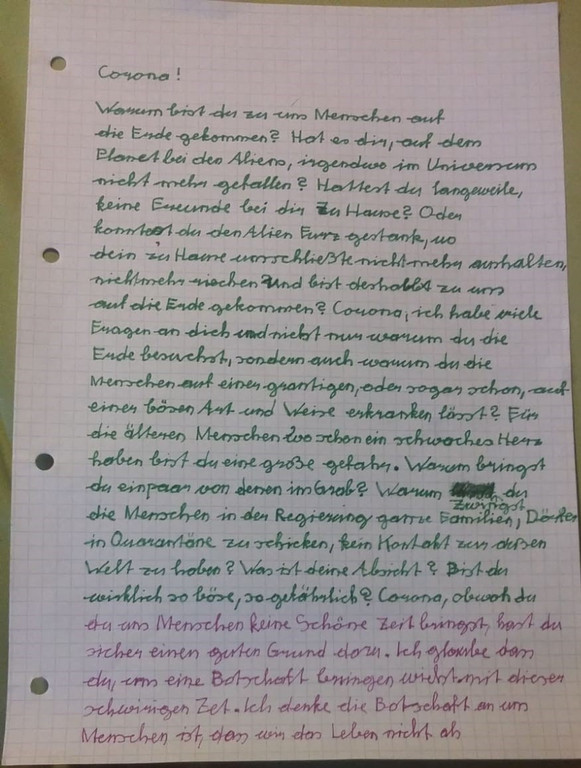 Corona!
Warum bist du zu uns Menschen auf
die Erde gekommen? Hat es dir, auf dem
Planet bei den Aliens, irgendwo im Universum
nicht mehr gefallen? Hattest du langeweile,
keine Freunde bei dir zu Hause? Oder
konntest du den Alien Furz gestank, wo
dein zu Hause umschließte nicht mehr aushalten,
nichtmehr riechen und bist deshalbt zu uns
auf die Erde gekommen? Corona, ich habe viele
Fragen an dich und nicht nur warum du die
Erde besuchst, sondern auch warum du die
Menschen auf einer grantigen, oder sogar schon, auf
einer bösen Art und Weise erkranken lässt? Für
die älteren Menschen wo schon ein schwaches Herz
haben bist du eine große gefahr. Warum bringst
du einpaar von denen im Grab? Warum zwingst du
die Menschen in der Regierung ganze Familien, Dörfer
in Quarantäne zu schicken, kein Kontakt zur außen
Welt zu haben? Was ist deine Absicht? Bist du
wirklich so böse, so gefährlich? Corona, obwoh du
du uns Menschen keine Schöne Zeit bringst, hast du
sicher einen guten Grund dazu. Ich glaube das
du, uns eine Botschaft bringen willst mit dieser
schwirigen Zet. Ich denke die Botschaft an uns
Menschen ist, das wir das Leben nicht als